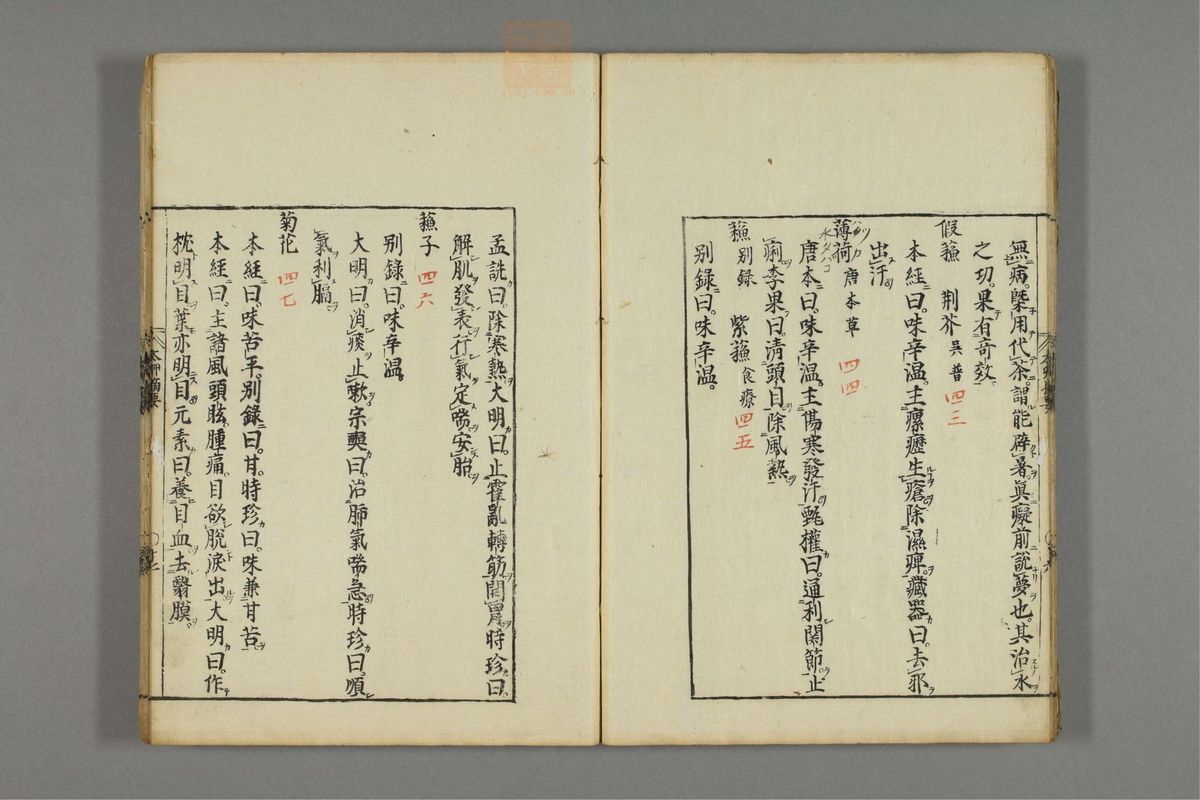 無病。槩用代茶。謂能辟暑。眞癡前說夢也。其治水
之功。果有奇效。
假蘓 荆芥 吴普 四三
本經曰。味辛溫。主瘰癧生瘡。除濕痺。藏器曰。去邪
出汗
薄荷 唐本草 四四
唐本曰。味辛溫。主傷寒發汗。甄權曰。通利関節。止
痢。李果曰。清頭目。除風熱。
蘓 別録 紫蘓 食療 四五
別錄曰。味辛溫。
孟詵曰。除寒熱。大明曰。止霍亂轉筋。開胃。時珍曰
解肌發表。行氣定喘。安胎。
蘓子 四六
別錄曰。味辛溫。
大明曰。消痰止嗽。宗奭曰。治肺氣喘急。時珍曰。順
氣利膈。
菊花 四七
本經曰。味苦平。別錄曰。甘。時珍曰。味兼甘苦。
本經曰。主諸風頭眩。腫痛。目欲脫。淚出。大明曰。作
枕明目。葉亦明目。元素曰。養目血。去翳膜。